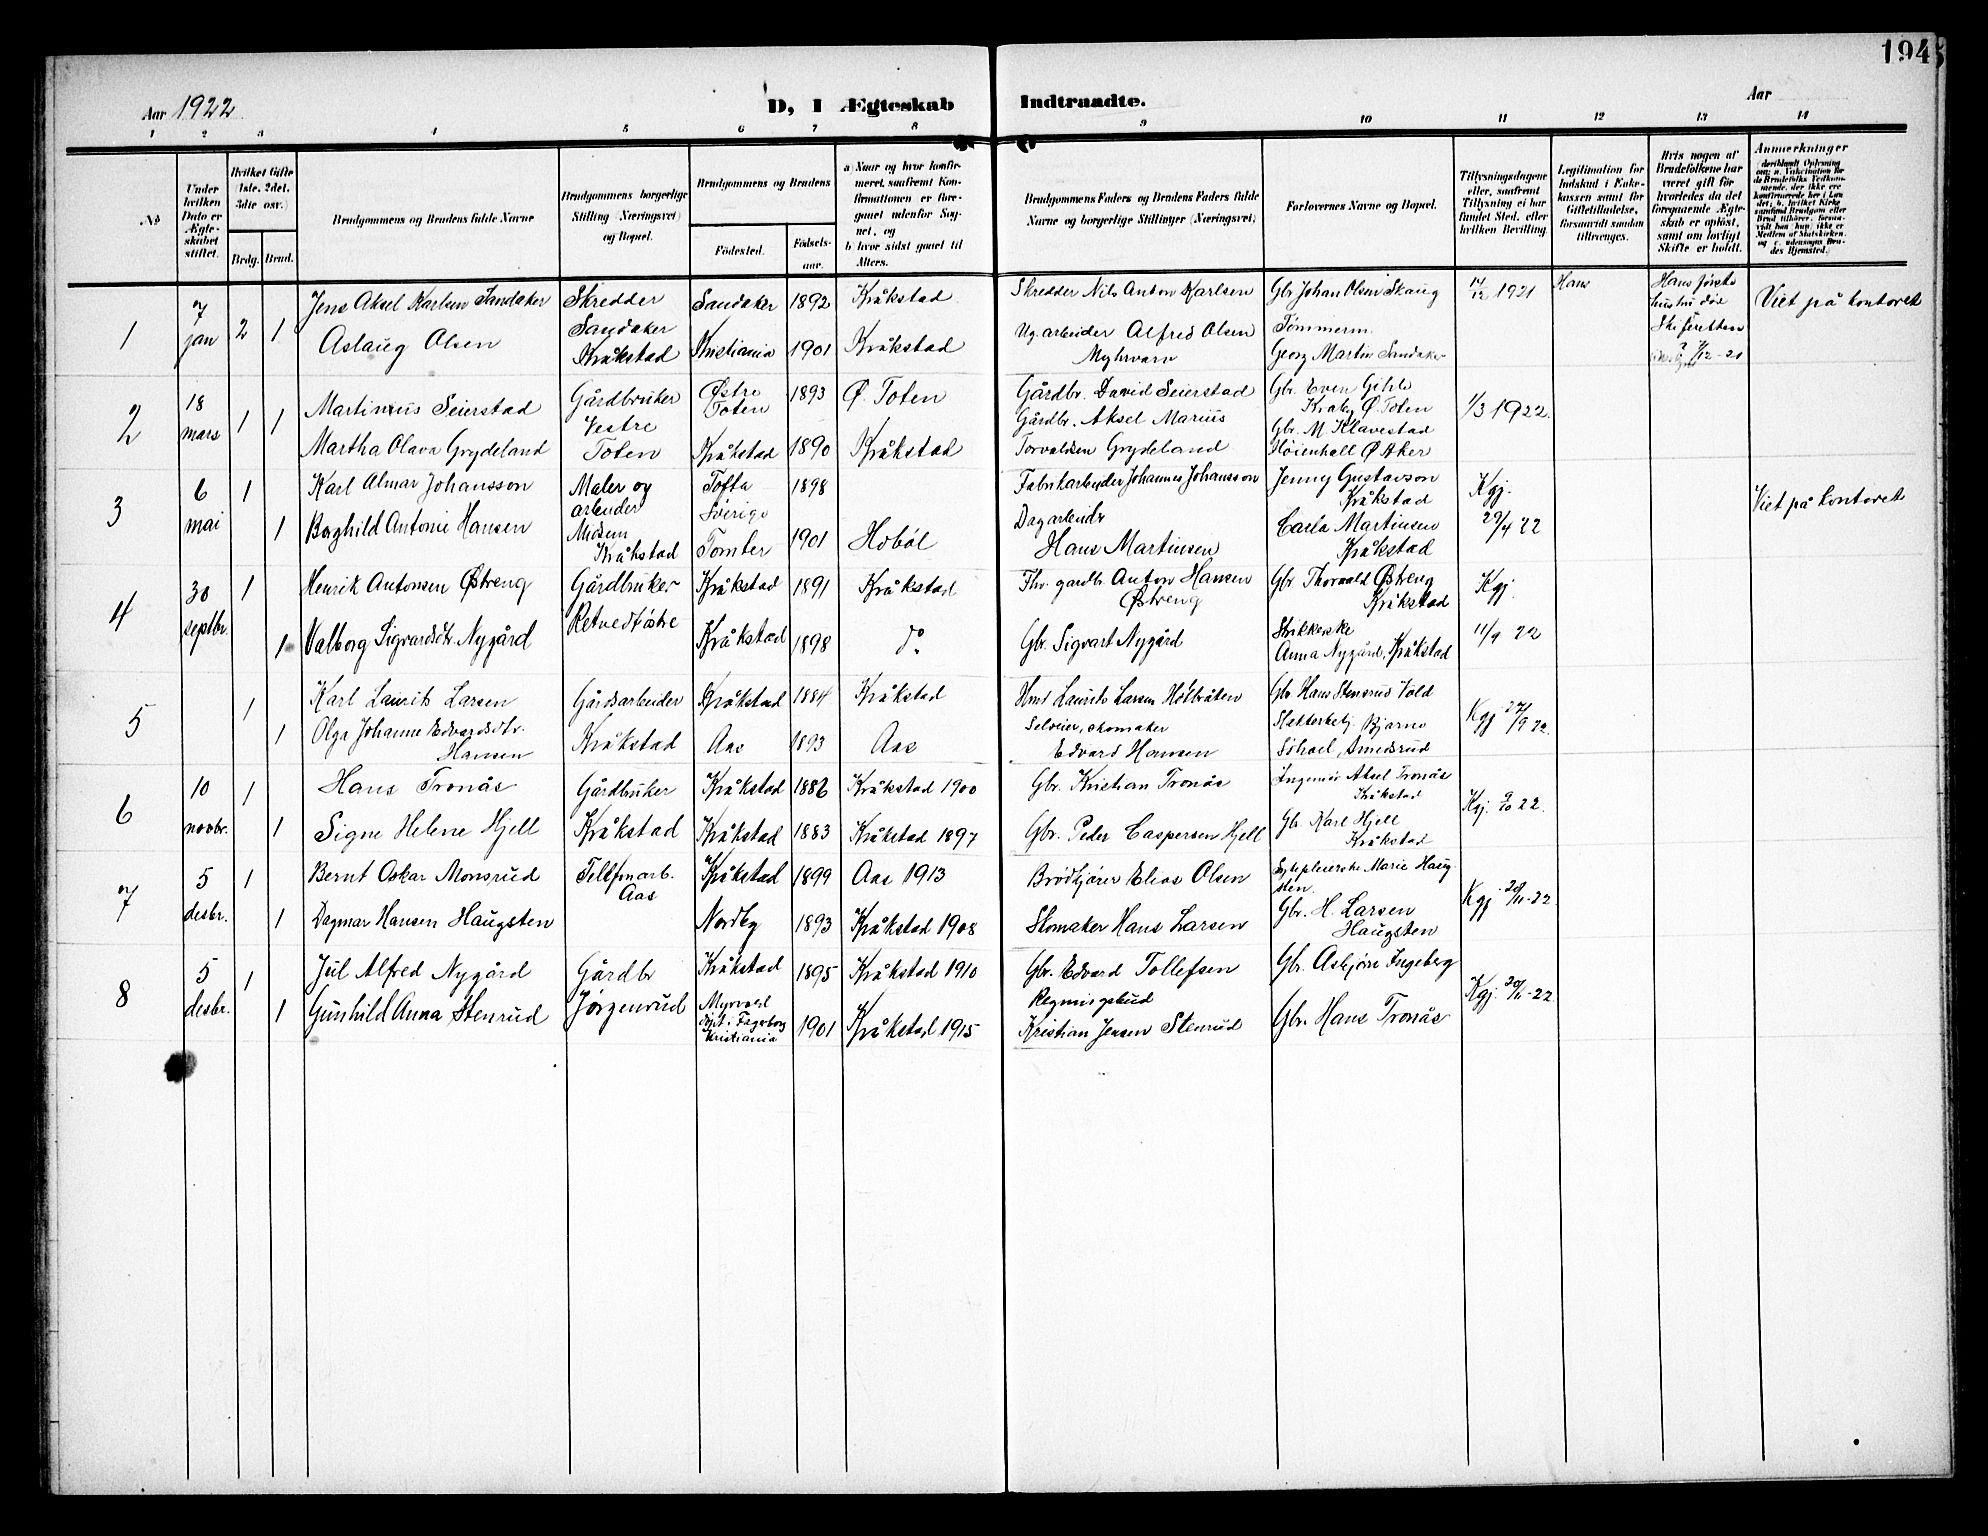 194
Aar 1922
D, I Ægteskab Indtraadte.
Aar
1 2 3 4 5 6 7 8 9 10 11 12 13 14
No
Under hvilken Dato er Ægteskabet stiftet.
Hvilket Gifte 1ste. 2det. 3die osv.)
Brdg. Brud.
Brudgommens og Brudens fulde Navne
Brudgommens borgerlige Stilling (Næringsvei) og Bopæl.
Brudgommens og Brudens
Födested.
Födsels-aar.
a) Naar og hvor konfirmeret, saafremt Konfirmationen er foregaaet udenfor Sognet, og
b) hvor sidst gaaet til Alters.
Brudgommens Faders og Brudens Faders fulde Navne og borgerlige Stillinger (Næringsvei)
Forlovernes Navne og Bopæl.
Tillysningsdagene eller, saafremt Tillysning ei har fundet Sted, efter hvilken Bevilling.
Legitimation for Indskud i Enkekassen samt for Giftetilladelse, forsaavidt saadan tiltrænges.
Hvis nogen af Brudefolkene har været gift för hvorledes da det foregaaende Ægteskab er oplöst, samt om lovligt Skifte er holdt.
Anmerkninger
1
7 jan
2 1
Jens Aksel Karlsen Sandaker
Aslaug Olsen
Skredder
Sandaker
Kråkstad
Sandaker 1892 Kråkstad
Kristiania 1901 Kråkstad
Skredder Nils Anton Karlsen
Ug. arbeider Alfred Olsen
Myhrvarn
Gbr Johan Olsen Skaug
Tømmerm.
Georg Martin Sandaker
14/12 1921
Hans
Hans første
hustru død
Skifteretten
Viet på kontoret
2
18 mars
1 1
Martinius Seierstad
Martha Olava Grydeland
Gårdbruker
Vestre
Toten
Østre Toten 1893 Ø. Toten
Kråkstad 1890 Kråkstad
Gårdbr. David Seierstad
Gårdbr. Aksel Marius
Torvaldsen Grydeland
Gbr. Even Gihle
Kraby Ø Toten
Gbr. M Klavestad
Høienhall Ø Aker
1/3 1922.
3
6 mai
1
1
Karl Almar Johansson
Borghild Antonie Hansen
Maler og
arbeider
Mosum
Kråkstad
Tofta Sverige 1898
Tomter 1901 Hobøl
Fabrikarbeider Johannes Johansson
Dagarbeider
Hans Martinsen
Jenny Gustavson
Kråkstad
Carla Martinsen
Kråkstad
Kgj.
29/4 22
Viet på kontoret
4
30 septbr.
1
1
Henrik Antonsen Østreng
Valborg Sigvardsdtr. Nygård
Gårdbruker
Retvedtøstre
Kråkstad 1891 Kråkstad
Kråkstad 1898 do
Fhv. gardbr. Anton Hansen
Østreng
Gbr. Sigvart Nygård
Gbr Thorvald Østreng
Kråkstad
Strikkerske
Anna Nygård, Kråkstad
Kgj.
11/9 22
5
1
1
Karl Laurits Larsen
Olga Johanne Edvardsdtr.
Hansen
Gårdsarbeider
Kråkstad
Kråkstad 1884 Kråkstad
Aas 1893 Aas
Hmd Laurits Larsen Holtbråten
Selveier, skomaker
Edvard Hansen
Gbr Hans Stensrud Vold
Bjarne
Kgj 27/9 22.
6
10 novbr.
1
1
Hans Tronås
Signe Helene Hjell
Gårdbruker
Kråkstad
Kråkstad 1886 Kråkstad 1900
Kråkstad 1883 Kråkstad 1897
Gbr. Kristian Tronås
Gbr. Peder Caspersen Hjell
Ingeniør Aksel Tronås
Kråkstad
Gb. Karl Hjell
Kråkstad
Kgj. 9/10 22.
7
5 desbr.
1
1
Bernt Oskar Monsrud
Dagmar Hansen Haugsten
Telefonarb.
Aas
Kråkstad 1899 Aas 1913
Nordby 1893 Kråkstad 1908
Brødkjører Elias Olsen
Skomaker Hans Larsen
Sykepleierske Marie Haug-
sten.
Gbr. H. Larsen
Haugsten
Kgj 20/11-22.
8
5 desbr.
1
1
Jul Alfred Nygård
Gunhild Anna Stenrud
Gårdbr
Jørgenrud
Kråkstad 1895 Kråkstad 1910
Myrvold
døpt i Fagerborg
Kristiania 1901 Kråkstad 1915
Gbr. Edvard Tollefsen
Kristian Jensen Stenrud
Gbr. Asbjørn Ingeberg
Gbr. Hans Tronås
Kgj. 20/11-22.